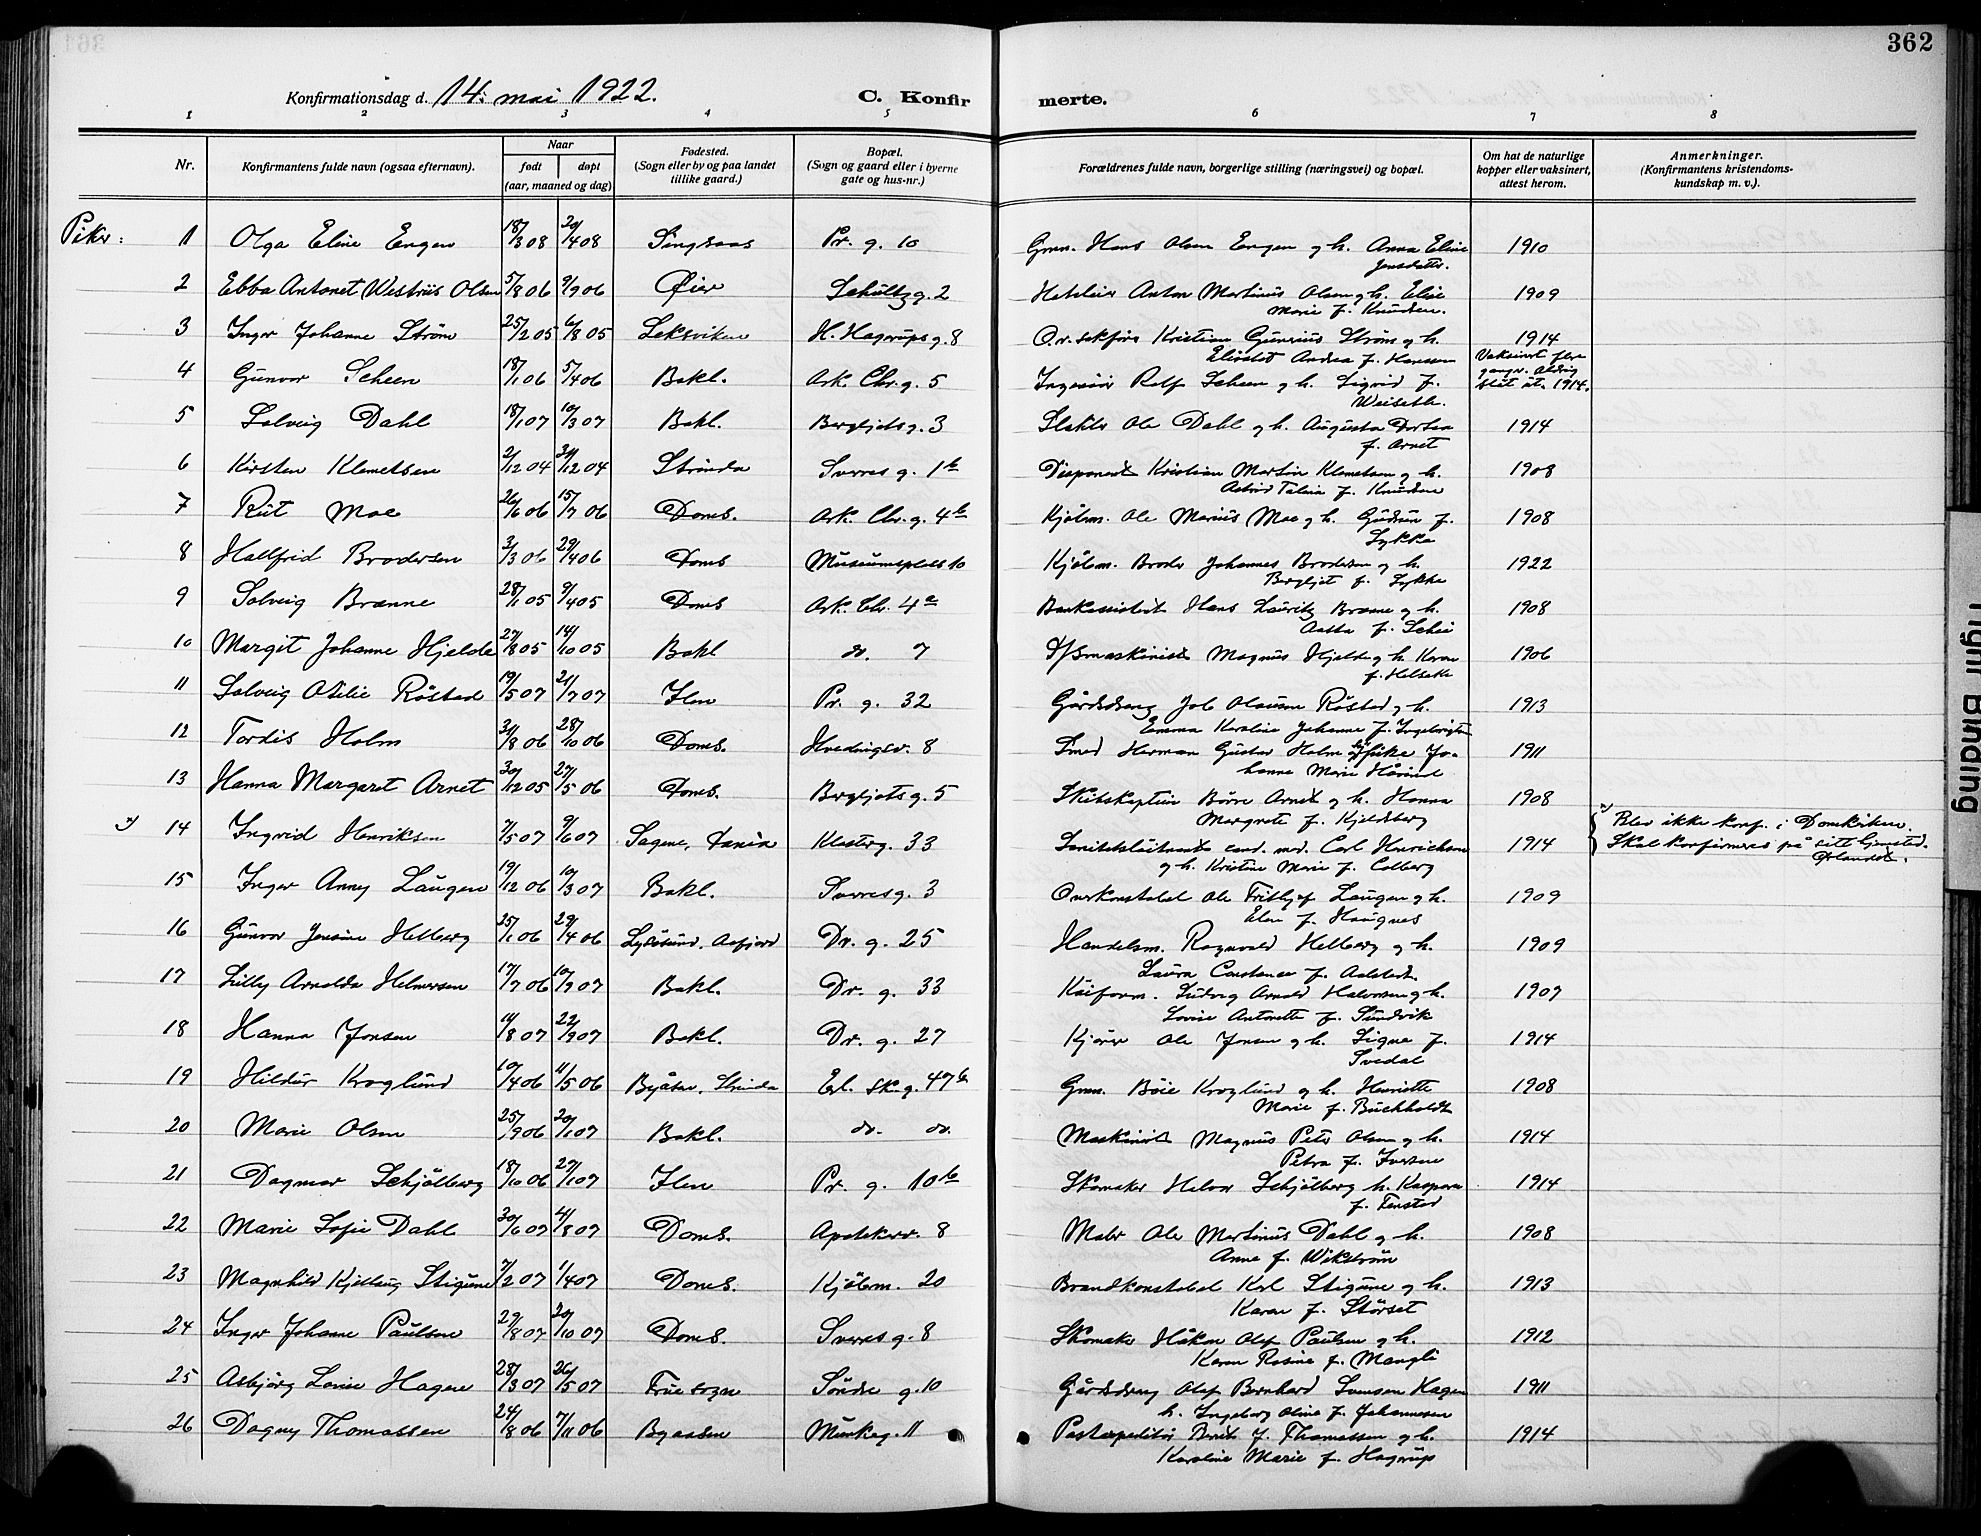 362
Konfirmationsdag d. 14. mai 1922.
C. Konfirmerte.
1 2 3 4 5 6 7 8
Nr.
Konfirmantens fulde navn (ogsaa efternavn).
Naar
født døpt
(aar, maaned og dag)
Fødested.
(Sogn eller by og paa landet
tillike gaard.)
Bopæl.
(Sogn og gaard eller i byerne
gate og hus-nr.)
Forældrenes fulde navn, borgerlige stilling (næringsvei) og bopæl.
Om hat de naturlige
kopper eller vaksinert,
attest herom.
Anmerkninger.
(Konfirmantens kristendoms-
kundskap m. v.).
Piker:
1 Olga Eline Engen 18/3 08 20/4 08 Singsaas Pr. g. 10 Grm. Hans Olsen Engen g h. Anna Eline 1910
Jensdatter.
2 Ebba Antonet Westriis Olsen 5/8 06 9/9 06 Øier Schultzg. 2 Anton Martinus Olsen g h. Eline 1909
Marie f. Knudsen.
3 Inger Johanne Strøm 25/2 05 6/8 05 Leksviken H. Hagerups g. 8 O.r. sakfører Kristian Gunerius Strøm g h. 1914
Andrea f. Hansen
4 Gunvor Scheen 18/1 06 5/4 06 Bakl. Ark. Chr. g. 5 Ingeniør Rolf Scheen g h. Sigrid f. Vaksinert flere
Weiseth. ganger. Aldrig
slåt åt. 1914.
5 Solveig Dahl 18/1 07 10/3 07 Bakl. Bergljots g. 3 Slakter Ole Dahl g h. Augusta Dortea 1914
f. Arnet
6 Kirsten Klemetsen 2/12 04 31/12 04 Strinda Sverres g. 1b Disponent Kristian Martin Klemetsen g h. 1908
Astrid f. Knudsen
7 Rut Moe 26/6 06 15/7 06 Doms. Ark. Chr. g. 4b Kjøbm. Ole Marius Moe g h. Gudrun f. 1908
Lykke
8 Hallfrid Brodersen 3/3 06 29/4 06 Doms Museumsplass 10 Kjøbm. Broder Johannes Brodersen g h. 1922
Bergljot f. Lykke
9 Solveig Brænne 28/1 05 9/4 05 Doms Ark. Chr. 4a Bankassistent Hans Lauritz Brænne g h. 1908
Aasta f. Schei
10 Margit Johanne Hjelde 27/8 05 14/10 05 Bakl do. 7 D/S maskinist Magnus Hjelde g h. Karen 1906
11 Solveig Otilie Røstad 19/5 07 21/7 07 Ilen Pr. g. 32 Gårdsdreng Job Olausen Røstad g h. 1913
Emma Karoline Johanne f. Ingebrigtsen
12 Tordis Holm 31/8 06 28/10 06 Doms. Hvedingsv. 8 Smed Herman Gustav Holm Jo- 1911
hanne Marie
13 Hanna Margaret Arnet 30/12 05 27/5 06 Doms. Bergljots g. 5 Skibskaptein Børre Arnet g h. Hanna 1908
Margrete f. Kjeldsberg
x) 14 Ingrid Henriksen 7/5 07 9/6 07 Sagene, Klosterg. 33 Sanitetsløitnant cand. med. Carl Henrichsen 1914 x) Blev ikke konf. i Domkirken.
g h. Kristine Marie f. Colberg Skal konfirmeres på sitt hjemsted.
Ørlandet.
15 Inger Anny Laugen 19/12 06 10/3 07 Bakl. Sverres g. 3 Overkonstabel Ole Frithjof Laugen g h. 1909
Elen f. Haugnes
16 Gunvor Jensine Helberg 25/1 06 29/4 06 Lysøsund, Aafjord Dr. g. 25 Handelsm. Ragnvald Helberg g h. 1909
Laura Constance f. Aalstedt
17 Lilly Arnolda Helmersen 17/7 06 10/7 07 Bakl. Dr. g. 33 Kaiform. Ludvig Arnold Halvorsen g h. 1907
Lovise Antonette f. Sundvik
18 Hanna Jonsen 14/8 07 22/9 07 Bakl. Dr. g. 27 Kjører Ole Jonsen g h. Signe f. 1914
Svedal
19 Hildur Kroglund 10/4 06 11/5 06 Byåsen, Strinda Erl. Sk. g. 47b Grm. Bøie Kroglund g h. Henriette 1908
Marie f. Buchholdt
20 Marie Olsen 25/9 06 20/1 07 Bakl. do. do. Maskinist Magnus Peter Olsen g h. 1914
Petra f. Iversen
21 Dagmar Schjølberg 18/10 06 27/1 07 Ilen Pr. g. 10b Skomaker Helor Schjølberg h. Kaspara 1914
f. Fenstad
22 Marie Sofie Dahl 30/6 07 4/8 07 Doms. Apotekerv. 8 Maler Ole Martinus Dahl g h. 1908
Anna f. Wikstrøm
23 Magnhild Kjellaug Stigune 7/2 07 1/4 07 Doms. Kjøbm. 20 Brandkonstabel Karl Stigune g h. 1913
Karen f. Størset
24 Inger Johanne Paulsen 27/8 07 20/10 07 Doms. Sverres g. 8 Skomaker Håkon Olaf Paulsen g h. 1912
Karen Rosine f. Mangli
25 Asbjørg Lovise Hagen 28/3 07 26/5 07 Frue sogn Søndre g. 10 Gårdsdreng Olaf Bernhard Svensen Hagen 1911
h. Ingeborg Oline f. Johannesen
26 Dagny Thomassen 24/8 06 7/11 06 Byaasen Munkeg. 11 Postexpeditør Bernt J. Thomassen g h. 1914
Karoline Marie f. Hagerup
Tight Binding